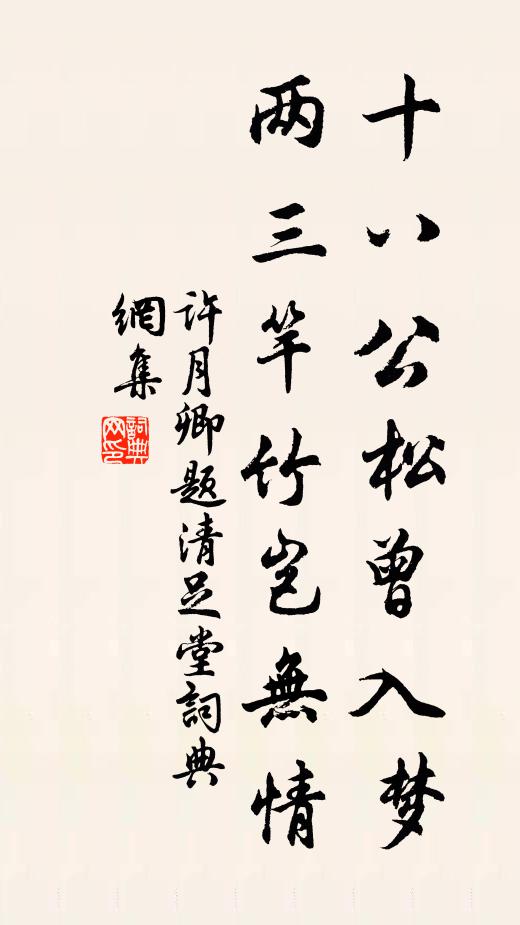 十八公松曾入梦
两三竿竹岂無情
許月卿題清足堂詞典
網集
詞典網印